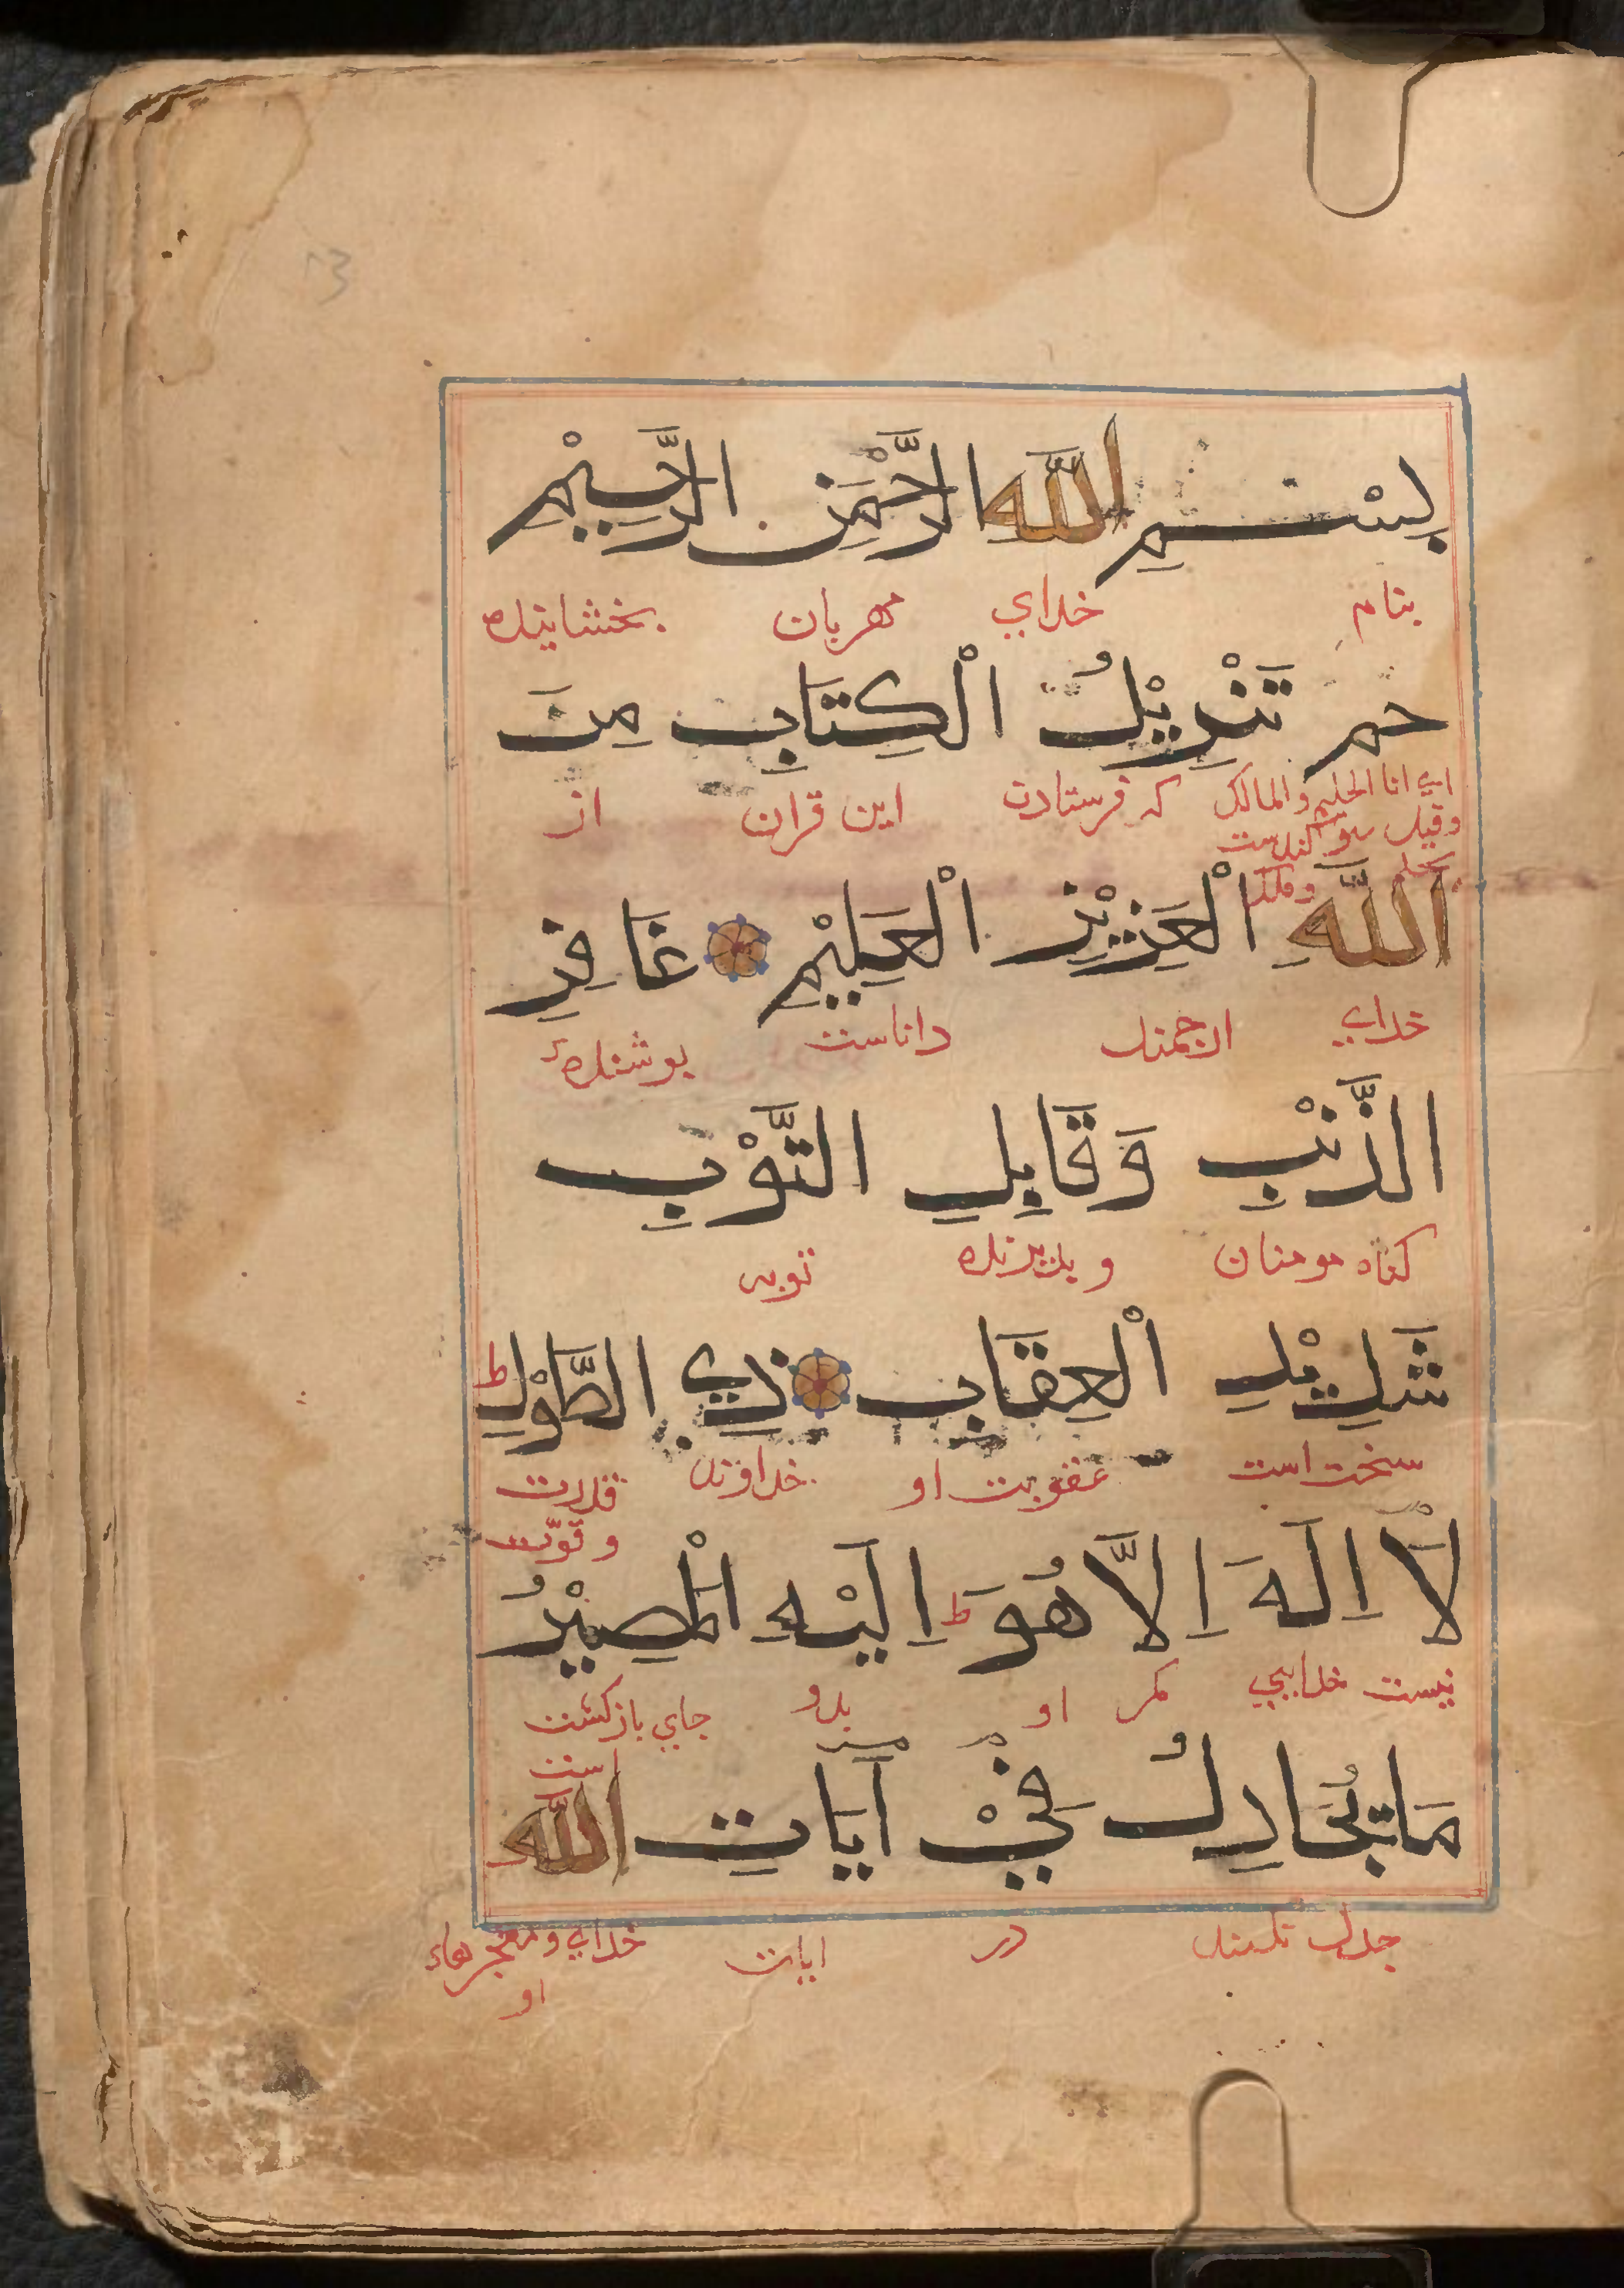 بِسْمِ اللّٰهِ الرَّحْمٰنِ الرَّحِيْمِ
بنام خداي مهربان بخشاينده
حم تَنْزِيْلُ الْكِتَابِ مِنَ
اي انا الحليم والمالك كه فرستادن اين قران از
وقيل سوكندست
بحلم وملك
اللّٰهِ الْعَزِيْزِ الْعَلِيْمِ غَافِرِ
خداي ارجمند داناست بوشندهٔ
الذَّنْبِ وَقَابِلِ التَّوْبِ
كناه مومنان و بذيرنده توبه
شَدِيْدِ الْعِقَابِ ذِي الطَّوْلِ ط
سخت است عقوبت او خداوند قدرت
و قوّت
لَآ اِلٰهَ اِلَّا هُوَ ط اِلَيْهِ الْمَصِيْرُ
نيست خدايي مكر او بدو جاي بازكشت
است
مَا يُجَادِلُ فِيْ آيَاتِ اللّٰهِ
جدل نكنند در ايات خداي و معجزهاء
او